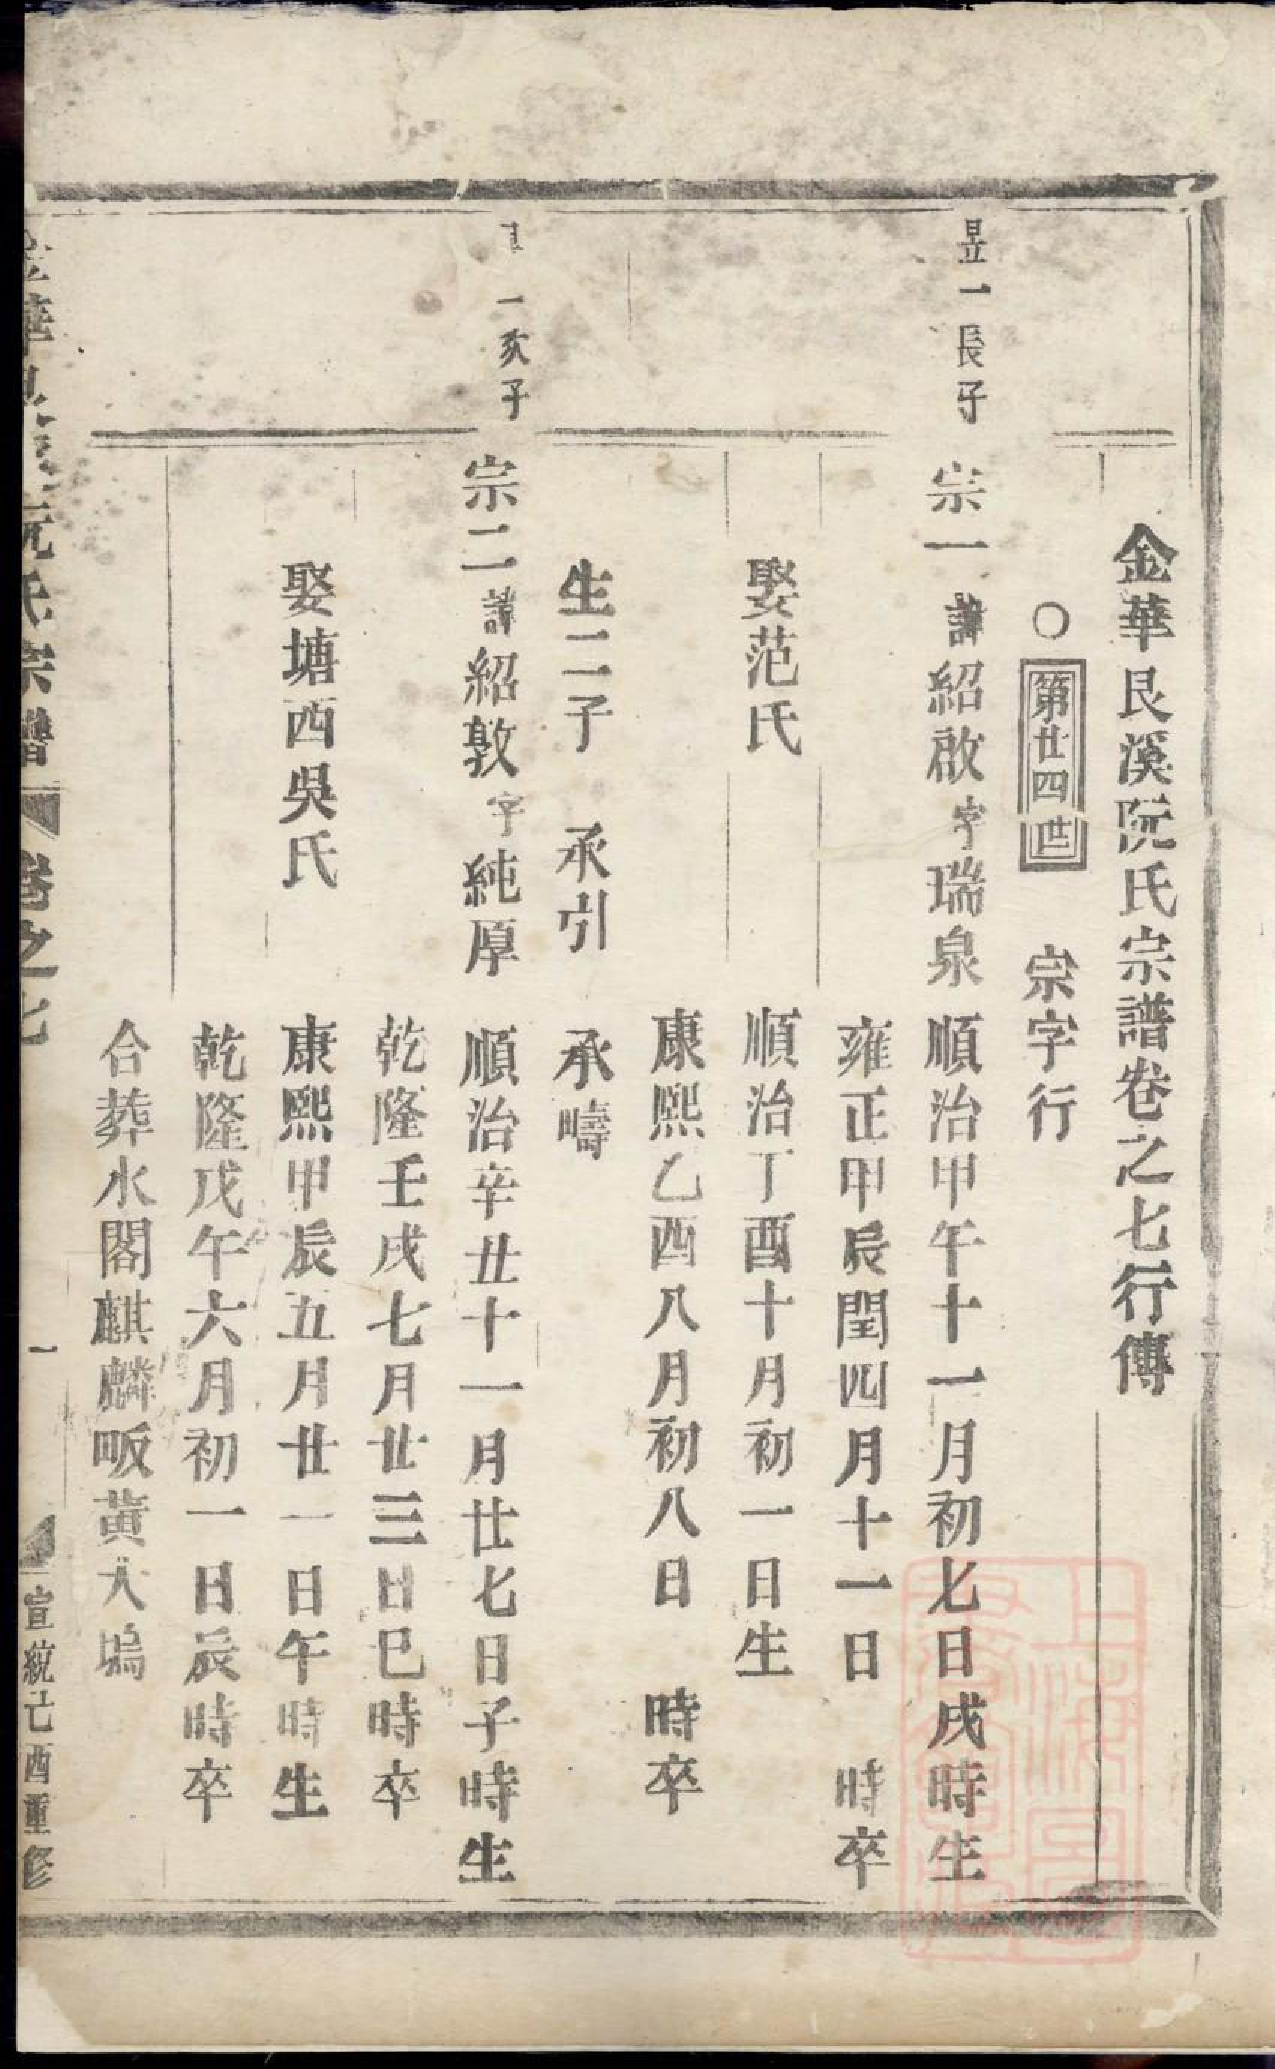 金華艮溪阮氏宗譜卷之七行傳
○第廿四世 宗字行
昱一長子 宗一諱紹啟字瑞泉 順治甲午十一月初七日戌時生
雍正甲辰閏四月十一日 時卒
娶范氏 順治丁酉十月初一日生
康熙乙酉八月初八日 時卒
生二子 承引 承疇
一次子 宗二諱紹敦字純厚 順治辛丑十一月廿七日子時生
乾隆壬戌七月廿三日巳時卒
娶塘西吳氏 康熙甲辰五月廿一日午時生
乾隆戊午六月初一日辰時卒
合葬水閣麒麟畈黃大塢
金華艮溪阮氏宗譜 卷之七 一 宣統己酉重修